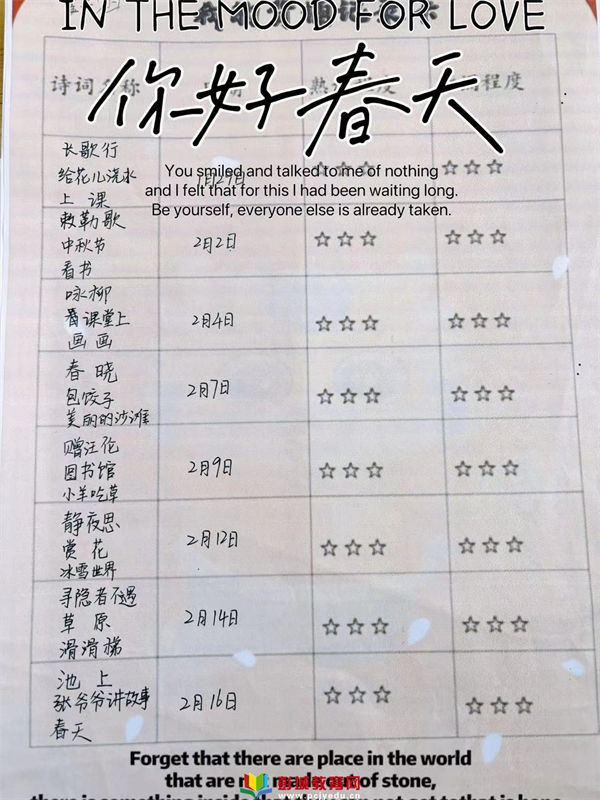 IN THE MOOD FOR LOVE
你好春天
诗词名称
程度
长歌行
给花儿浇水
上课
You smiled and talked to me of nothing
and I felt that for this I had been waiting long.
Be yourself, everyone else is already taken.
☆☆☆
敕勒歌
中秋节
看书
2月2日
☆☆☆
☆☆☆
咏柳
看课堂上
画画
2月4日
☆☆☆
☆☆☆
春晓
包饺子
美丽的沙滩
2月7日
☆☆☆
☆☆☆
赠汪伦
图书馆
小羊吃草
2月9日
☆☆☆
☆☆☆
静夜思
赏花
冰雪世界
2月12日
☆☆☆
☆☆☆
寻隐者不遇
草原
滑滑梯
2月14日
☆☆☆
☆☆☆
池上
张爷爷讲故事
春天
2月16日
☆☆☆
☆☆☆
Forget that there are place in the world
that are made of stone,
教育网
www.pcjyedu.cn